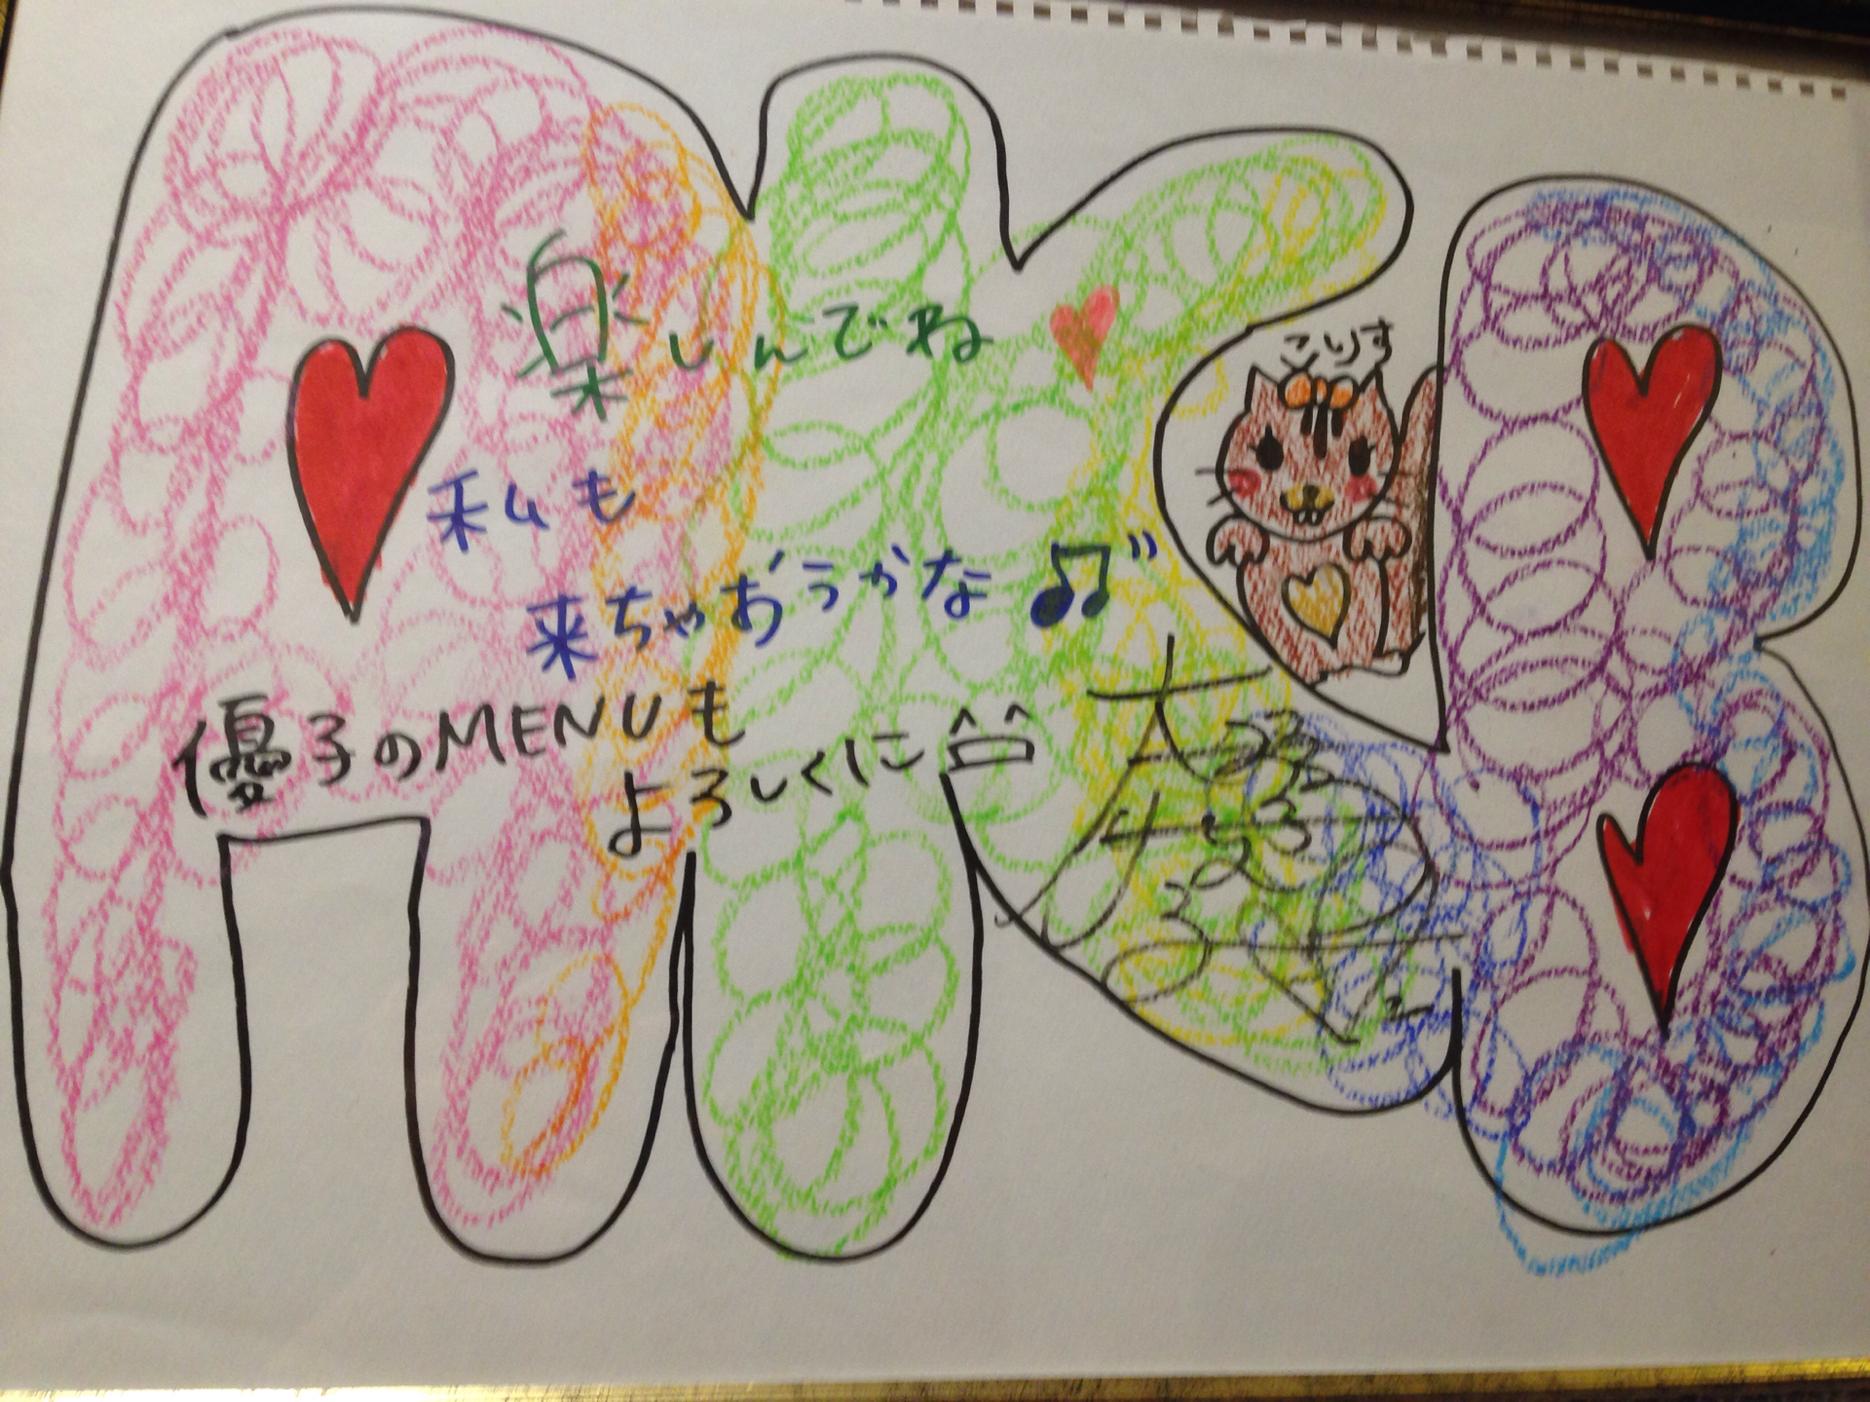 AKB
楽しんでね
こりす
私も
来ちゃおうかな
優子のMENUも
よろしくに